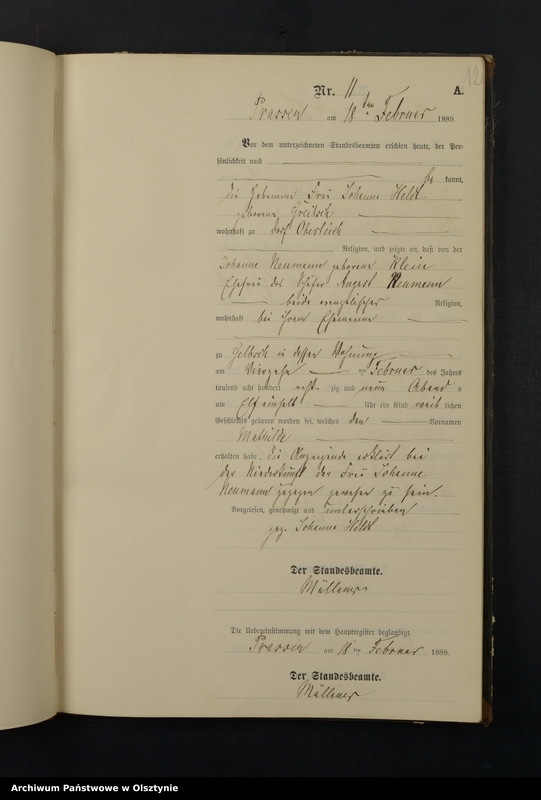 12
Nr. 11 A.
Prassen am 18ten Februar 1889.
Vor dem unterzeichneten Standesbeamten erschien heute, der Per-
sönlichkeit nach
be kannt,
die Hebamme Frau Johanne Heldt
geborene
wohnhaft zu Dorf
Religion, und zeigte an, daß von der
Johanne Neumann geborene Klein
Ehefrau des Schäfer August Neumann
beide evangelischer Religion,
wohnhaft bei ihrem Ehemanne
zu in dessen Wohnung
am vierzehn ten Februar des Jahres
tausend acht hundert acht zig und neun Abend s
um Elf einhalb Uhr ein Kind weib lichen
Geschlechts geboren worden sei, welches den Vornamen
Mathilde
erhalten habe. Die Anzeigende erklärt bei
der Niederkunft der Frau Johanne
Neumann zugegen gewesen zu sein.
Vorgelesen, genehmigt und unterschrieben
gez. Johanne Heldt
Der Standesbeamte.
Die Uebereinstimmung mit dem Hauptregister beglaubigt.
Prassen am 18ten Februar 1889.
Der Standesbeamte.
Archiwum Państwowe w Olsztynie